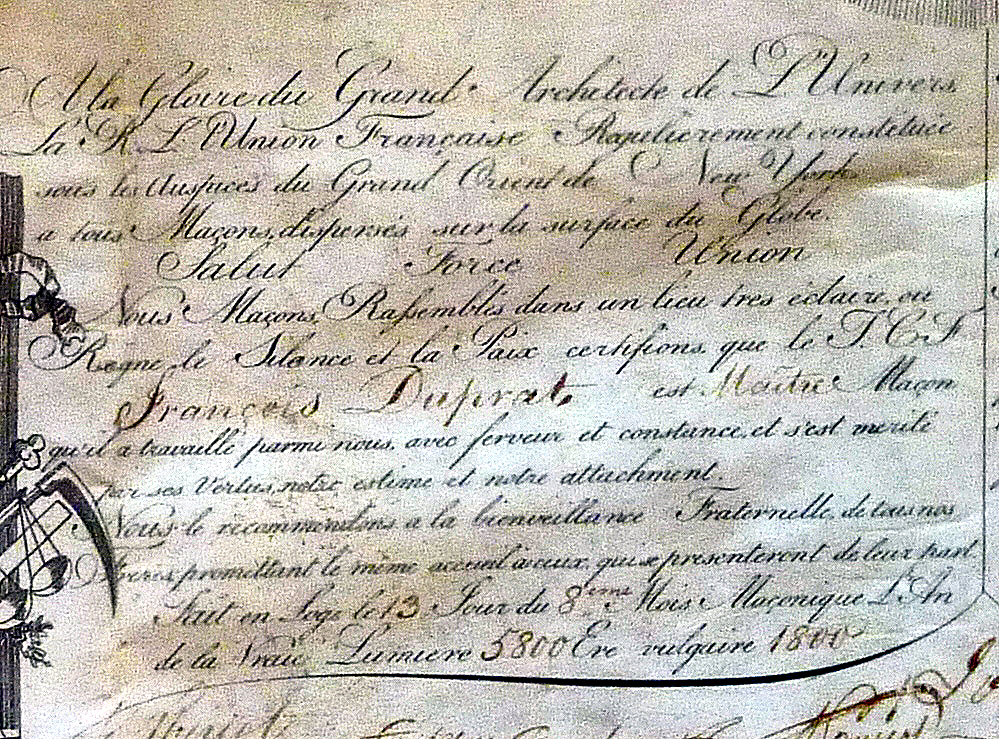 A la Gloire du Grand Architecte de L'Univers
La R. L. L'Union Française Régulièrement constituée
sous les Auspices du Grand Orient de New York
a tous Maçons, dispersés sur la surface du Globe.
Salut Force Union
Nous Maçons, Rassemblés dans un lieu tres éclairé, ou
Règne le Silance et la Paix certifions que le T. C. F.
François Duprat, est Maitre Maçon
qu'il a travaillé parmi nous, avec ferveur et constance, et s'est merité
par ses Vertus, notre estime et notre attachment.
Nous le recommendons a la bienveillance Fraternelle de tous nos
Freres, promettant le même accueil a ceux, qui se presenteront de leur part
Fait en Loge le 13 Jour du 8eme Mois Maçonique L'An
de la Vraie Lumiere 5800 Ere vulgaire 1800